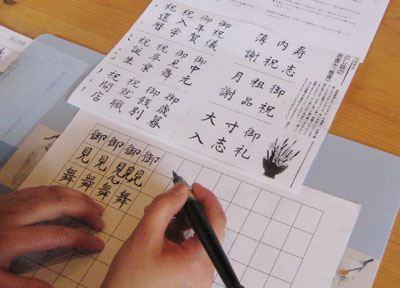 寿
志
内祝
薄謝
御祝
粗品
月謝
御礼
寸志
大入
御祝儀
御年賀
祝入学
祝還暦
御中元
御見舞
祝卒業
祝誕生
御歳暮
御餞別
祝就職
祝開店
御見舞
御見舞
御見舞
御見舞